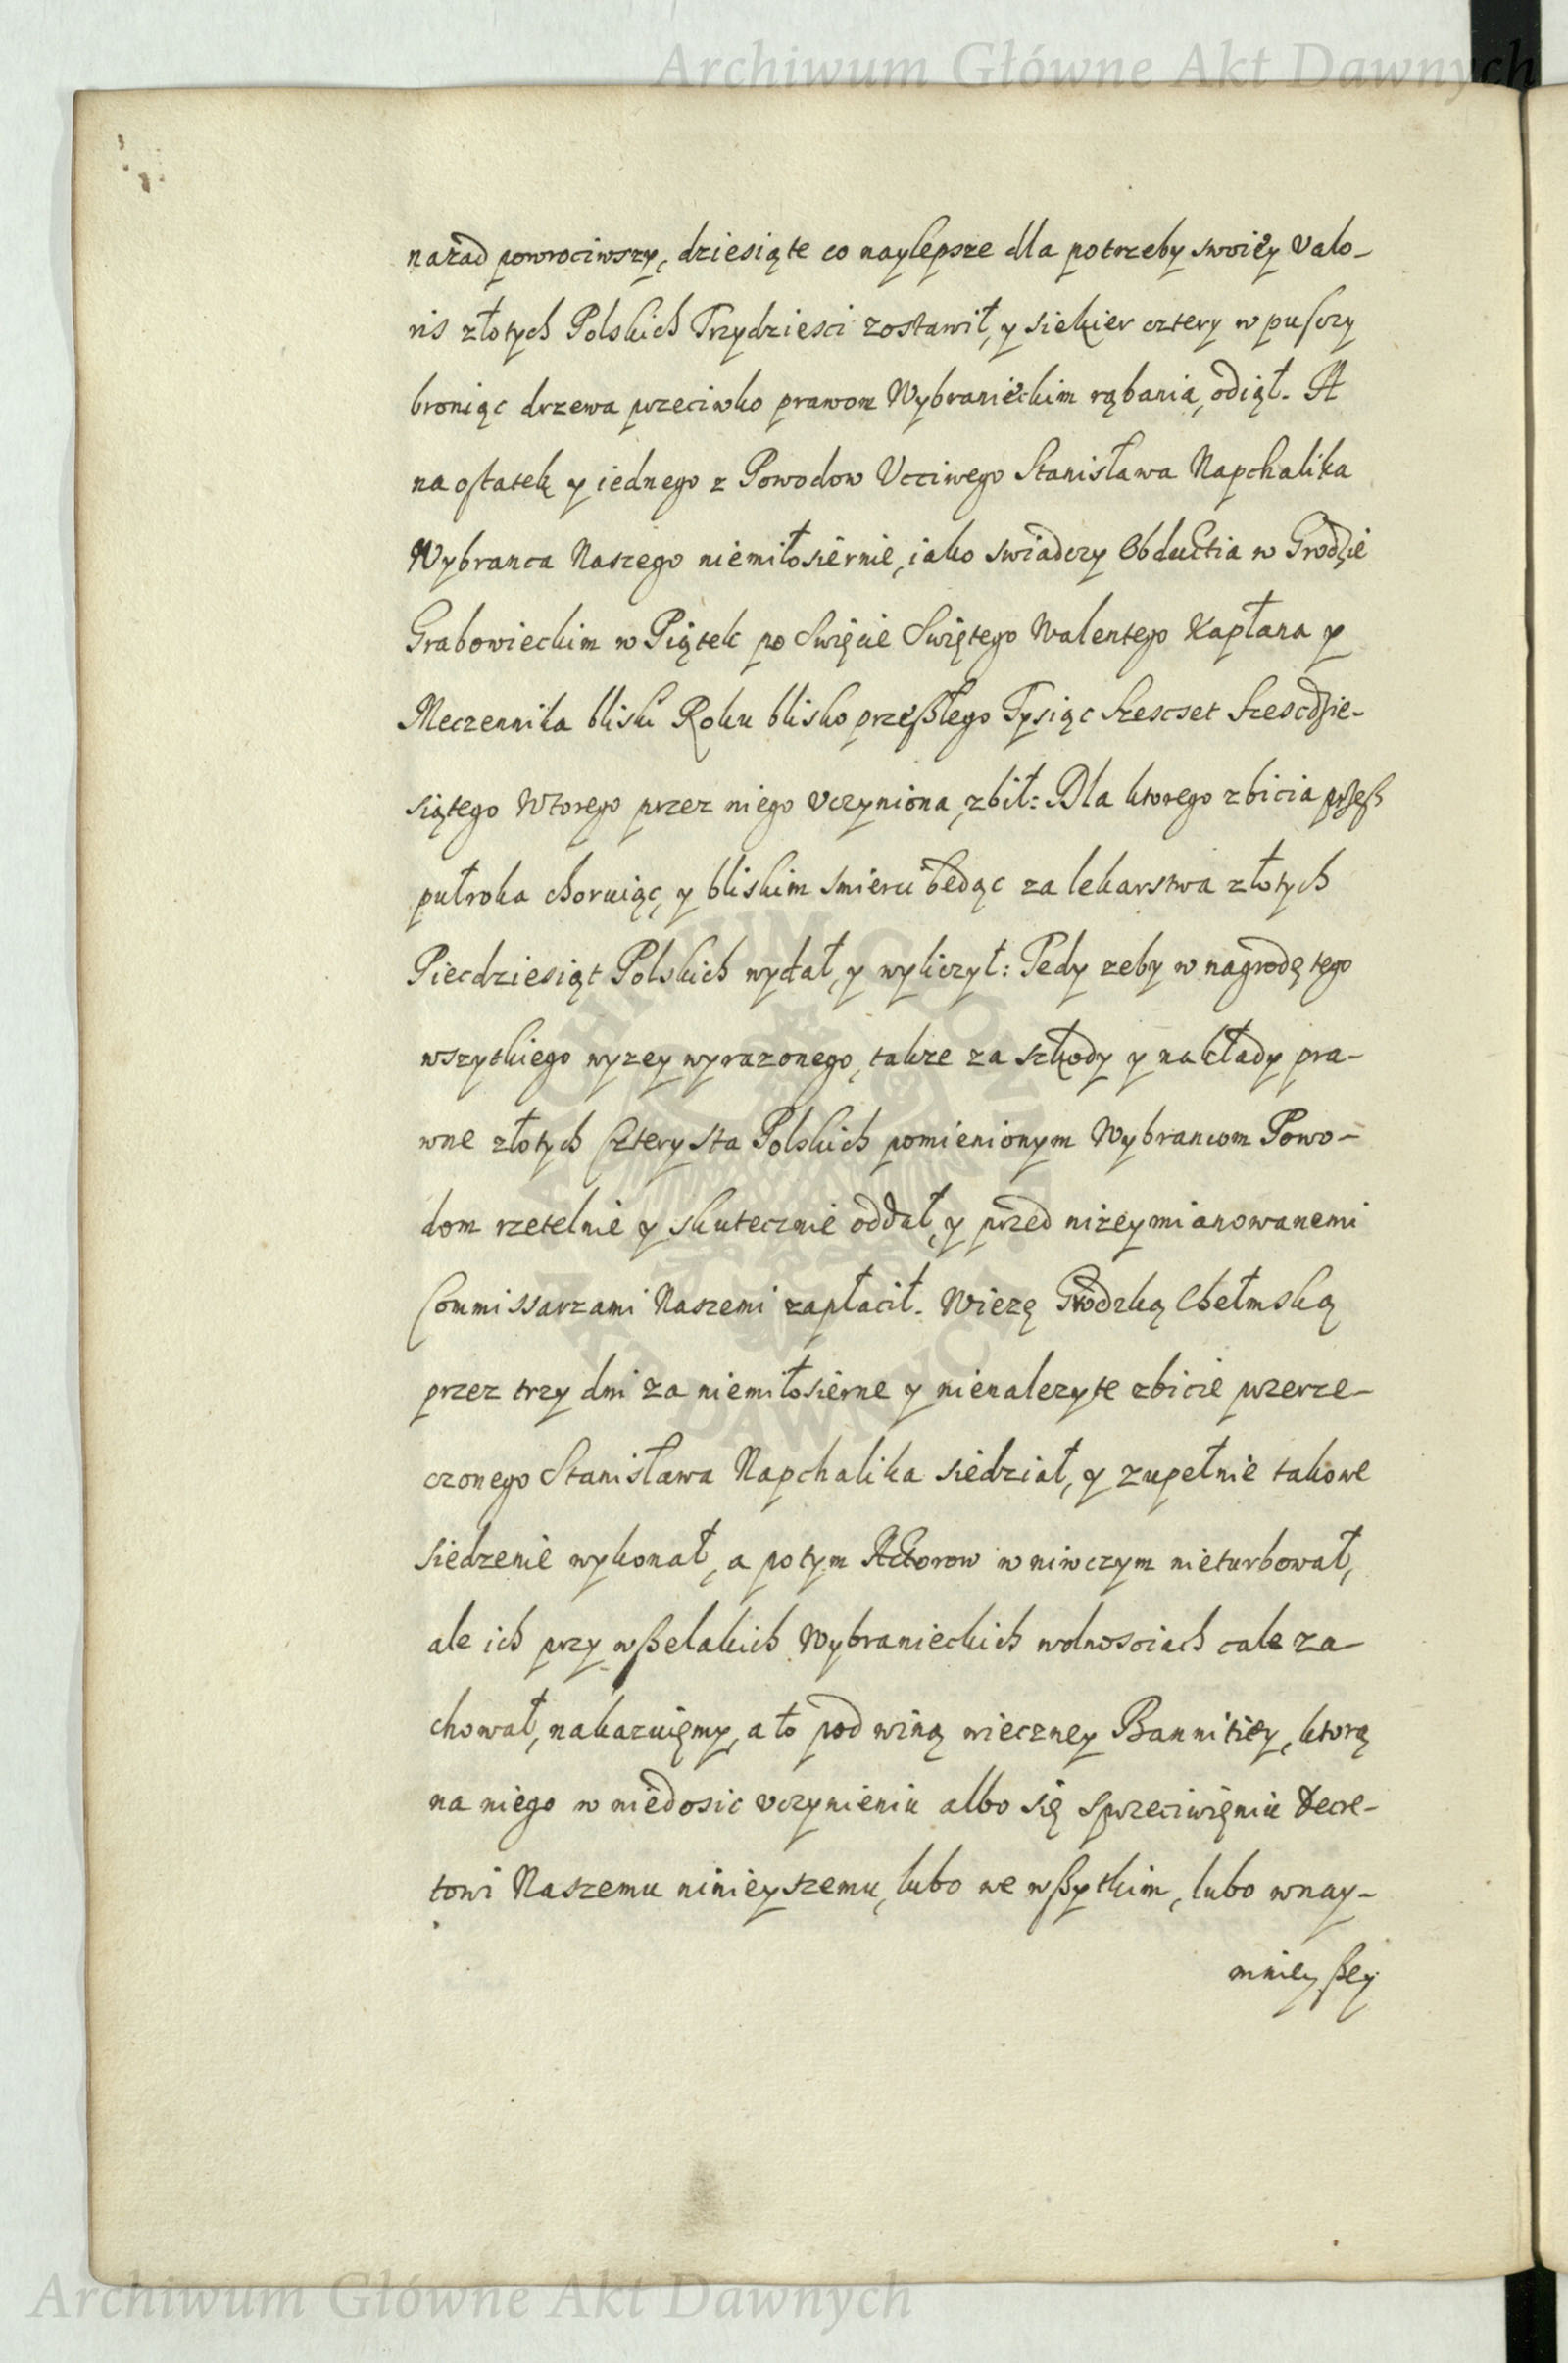 Archiwum Główne Akt Dawnych
nazad powrociwszy, dziesiąte co naylepsze dla potrzeby swoiey valo-
ris złotych Polskich Trzydziesci zostawił, y siekier cztery w pusczy
broniąc drzewa przeciwko prawom Wybranieckim rąbania, odiął. A
na ostatek y iednego z Powodow Vcciwego Stanisława Napchalika
Wybranca Naszego niemiłosiernie, iako swiadczy Obductia w Grodzie
Grabowieckim w Piątek po Swięcie Swiętego Walentego Kapłana y
Meczennika bliski Roku blisko przeßłego Tysiąc Szescset Szescdzie-
siątego Wtorego przez niego vczyniona, zbił: Dla ktorego zbicia przeß
pułroka choruiąc, y bliskim smierci będąc za lekarstwa złotych
Piecdziesiąt Polskich wydał, y wyliczył: Tedy zeby w nagrodę tego
wszytkiego wyzey wyrazonego, takze za szkody y nakłady pra-
wne złotych Czterysta Polskich pomienionym Wybrancom Powo-
dom rzetelnie y skutecznie oddał, y przed nizeymianowanemi
Commissarzami Naszemi zapłacił. Wiezę Grodzką Chełmską
przez trzy dni za niemiłosierne y nienalezyte zbicie przerze-
czonego Stanisława Napchalika siedział, y zupełnie takowe
siedzenie wykonał, a potym Actorow w niwczym nieturbował,
ale ich przy wßelakich Wybranieckich wolnosciach cale za-
chował, nakazuięmy, a to pod winą wieczney Bannitiey, ktorą
na niego w niedosic vczynieniu albo się sprzeciwięniu Decre-
towi Naszemu ninieyszemu, lubo we wßytkim, lubo wnay-
mnieyßey
Archiwum Główne Akt Dawnych